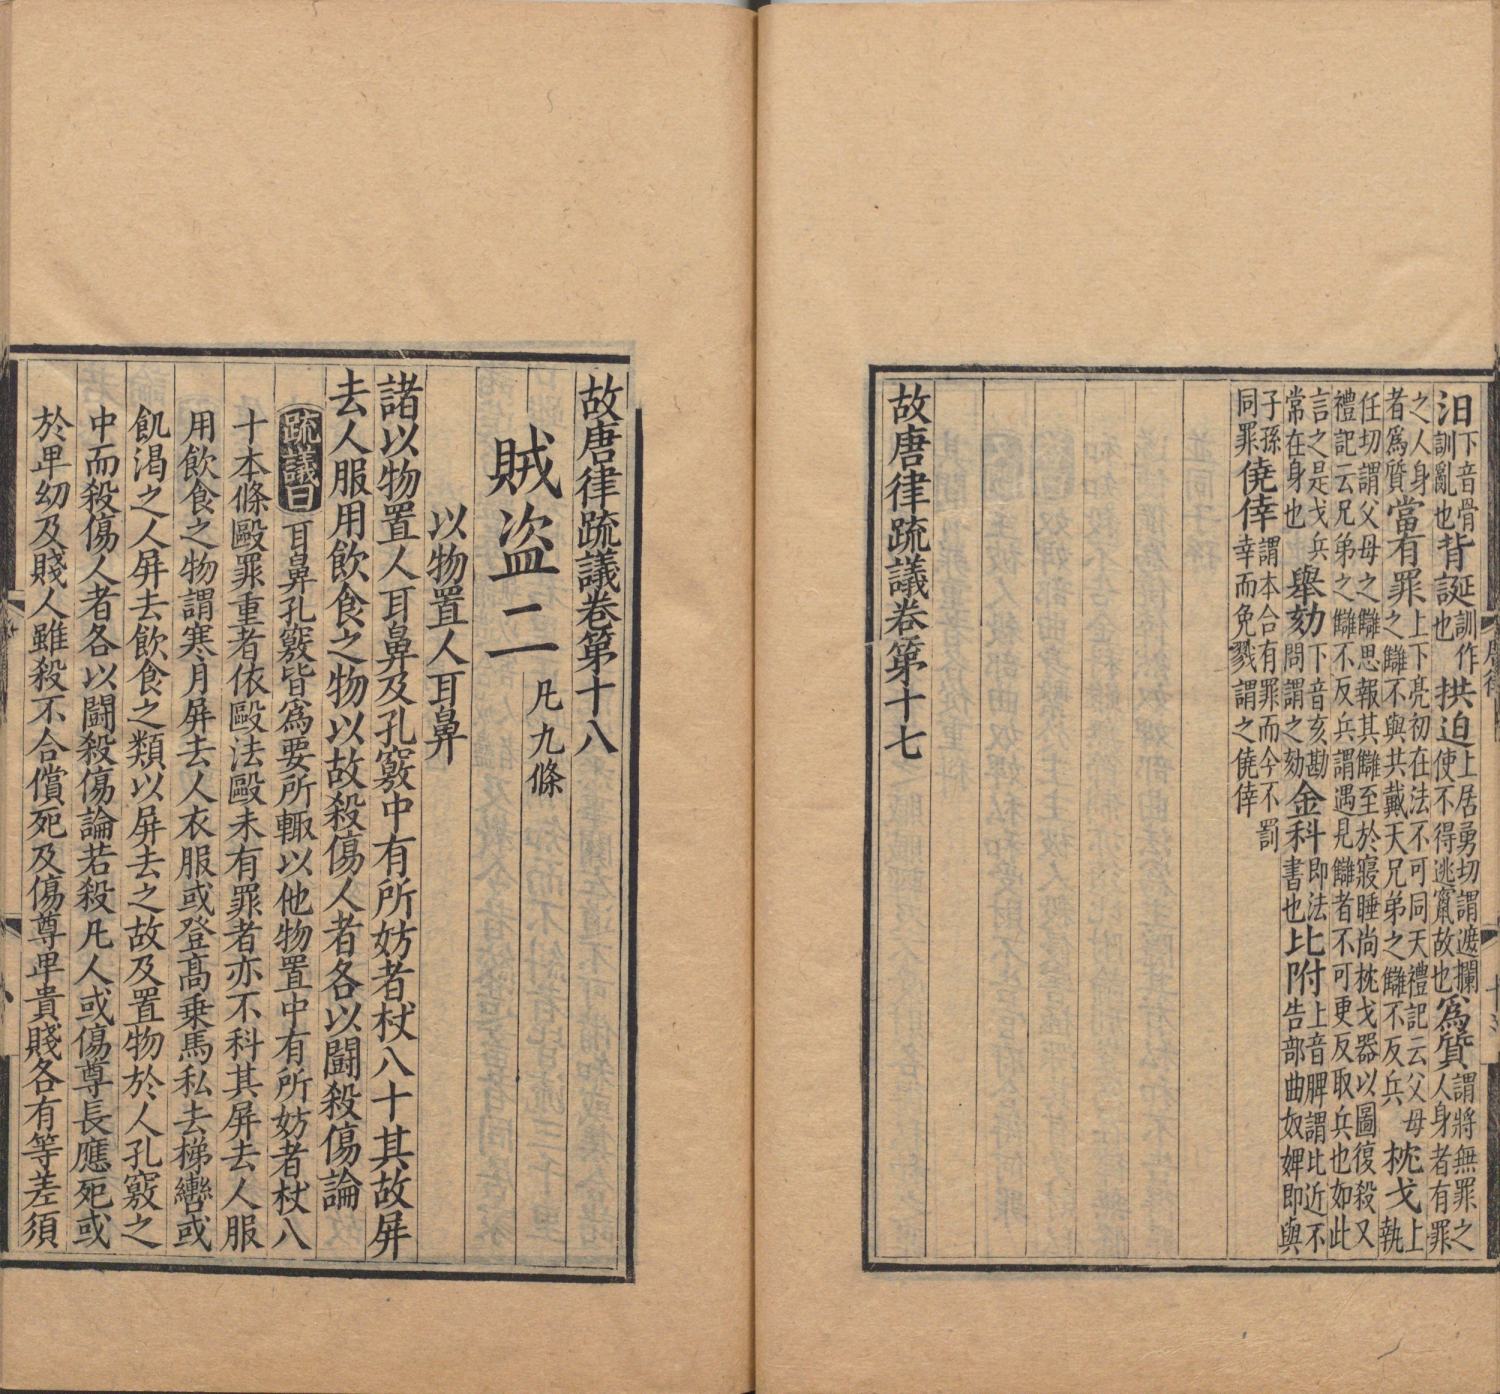 汨下音骨訓亂也背誕訓作也拱迫上居勇切謂遮攔使不得逃竄故也爲質謂將無罪之人身者有罪
之人身者爲質當有罪上下亮初在法不可同天禮記云父母之讎不與共戴天兄弟之讎不反兵枕戈上執
任切謂父母之讎思報其讎至於寢睡尚枕戈器以圖復殺又禮記云兄弟之讎不反兵謂遇見讎者不可更反取兵也如此
言之是戈兵常在身也舉劾下音亥勘問謂之劾金科即法書也比附上音脾謂比近不告部曲奴婢即與
子孫同罪僥倖謂本合有罪而今不罰幸而免戮謂之僥倖
故唐律疏議卷第十七
故唐律疏議卷第十八
賊盜二凡九條
以物置人耳鼻
諸以物置人耳鼻及孔竅中有所妨者杖八十其故屏
去人服用飲食之物以故殺傷人者各以鬭殺傷論
疏議曰耳鼻孔竅皆爲要所輙以他物置中有所妨者杖八
十本條毆罪重者依毆法毆未有罪者亦不科其屏去人服
用飲食之物謂寒月屏去人衣服或登高乗馬私去梯轡或
飢渴之人屏去飲食之類以屏去之故及置物於人孔竅之
中而殺傷人者各以鬭殺傷論若殺凡人或傷尊長應死或
於卑幼及賤人雖殺不合償死及傷尊卑貴賤各有等差須